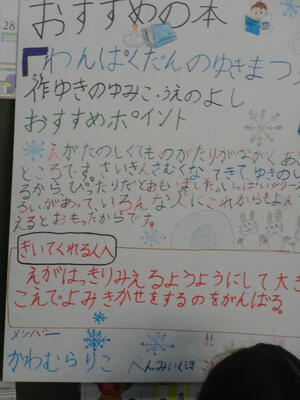 28
おすすめの本
『わんぱくだんのゆきまつ
作ゆきのゆみこ・うえのよし
おすすめポイント
えがたのしくてものがたりがながく あ
ところです。さいきんさむくなてきてゆきの
るから、ぴったりだとおもいました。いっぱいシリーズ
ろいがあって、いろんな人にこれからもよん
えるとおもったからです。
きいてくれる人へ
えがはっきりみえるようようにして大き
こえでよみきかせをするのをがんばる。
メンバー
かわむらりこ へんみいくほ